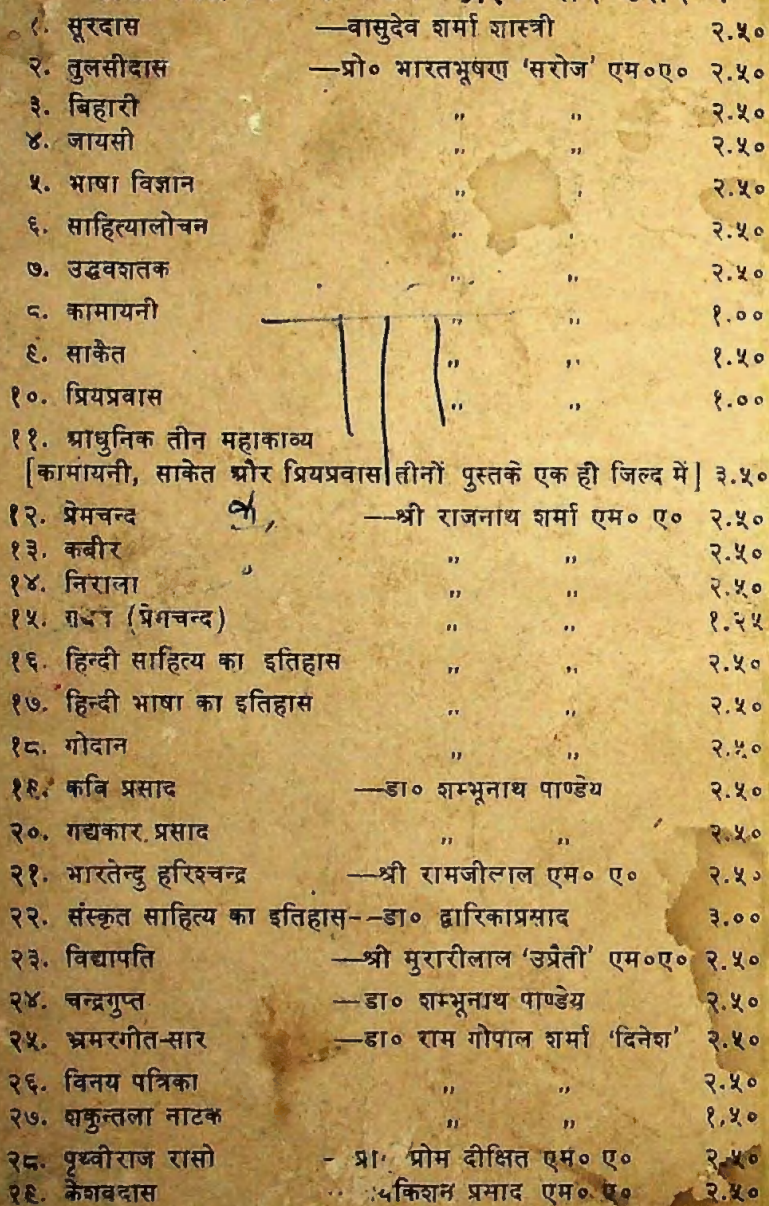 १. सूरदास —वासुदेव शर्मा शास्त्री २.५०
२. तुलसीदास —प्रो० भारतभूषण 'सरोज' एम०ए० २.५०
३. बिहारी ,, ,, २.५०
४. जायसी ,, ,, २.५०
५. भाषा विज्ञान ,, ,, २.५०
६. साहित्यालोचन ,, ,, २.५०
७. उद्धवशतक ,, ,, २.५०
८. कामायनी ,, ,, १.००
९. साकेत ,, ,, १.५०
१०. प्रियप्रवास ,, ,, १.००
११. आधुनिक तीन महाकाव्य
[कामायनी, साकेत और प्रियप्रवास तीनों पुस्तकें एक ही जिल्द में] ३.५०
१२. प्रेमचन्द —श्री राजनाथ शर्मा एम० ए० २.५०
१३. कबीर ,, ,, २.५०
१४. निराला ,, ,, २.५०
१५. (प्रेमचन्द) ,, ,, १.२५
१६. हिन्दी साहित्य का इतिहास ,, ,, २.५०
१७. हिन्दी भाषा का इतिहास ,, ,, २.५०
१८. गोदान ,, ,, २.५०
१९. कवि प्रसाद —डा० शम्भूनाथ पाण्डेय २.५०
२०. गद्यकार प्रसाद ,, ,, २.५०
२१. भारतेन्दु हरिश्चन्द्र —श्री रामजीलाल एम० ए० २.५०
२२. संस्कृत साहित्य का इतिहास--डा० द्वारिकाप्रसाद ३.००
२३. विद्यापति —श्री मुरारीलाल 'उप्रैती' एम०ए० २.५०
२४. चन्द्रगुप्त —डा० शम्भूनाथ पाण्डेय २.५०
२५. भ्रमरगीत-सार —डा० राम गोपाल शर्मा 'दिनेश' २.५०
२६. विनय पत्रिका ,, ,, २.५०
२७. शकुन्तला नाटक ,, ,, १.५०
२८. पृथ्वीराज रासो - प्रेम दीक्षित एम० ए० २.५०
२९. केशवदास प्रसाद एम० ए० २.५०